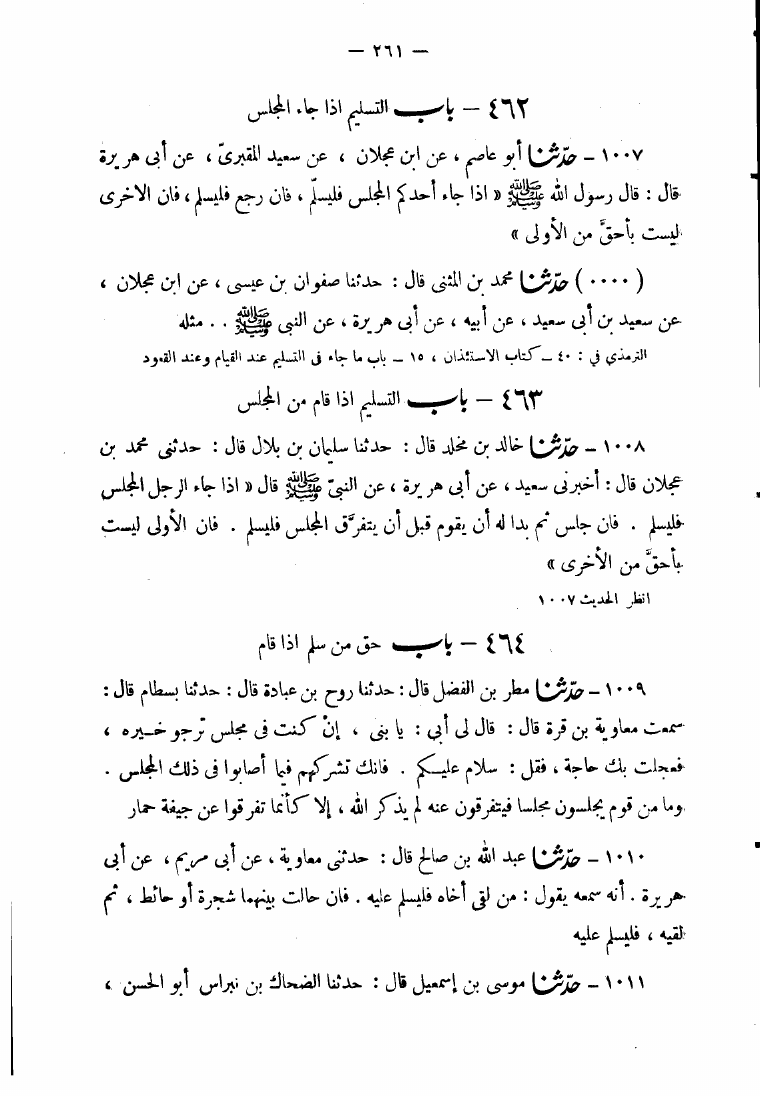 — ٢٦١ —
٤٦٢ — باب التسليم اذا جاء المجلس
١٠٠٧ — حدّثنا أبو عاصم ، عن ابن عجلان ، عن سعيد المقبرىّ ، عن أبى هريرة
قال : قال رسول الله ﷺ « اذا جاء أحدكم المجلس فليسلّم ، فان رجع فليسلم ، فان الاخرى
ليست بأحقَّ من الأولى »
( ٠٠٠٠ ) حدّثنا محمد بن المثنى قال : حدثنا صفوان بن عيسى ، عن ابن عجلان ،
عن سعيد بن أبى سعيد ، عن أبيه ، عن أبى هريرة ، عن النبى ﷺ . . مثله
الترمذي في : ٤٠ — كتاب الاستئذان ، ١٥ — باب ما جاء فى التسليم عند القيام وعند القعود
٤٦٣ — باب التسليم اذا قام من المجلس
١٠٠٨ — حدّثنا خالد بن مخلد قال : حدثنا سليمان بن بلال قال : حدثنى محمد بن
عجلان قال : أخبرنى سعيد ، عن أبى هريرة ، عن النبىّ ﷺ قال « اذا جاء الرجل المجلس
فليسلم . فان جلس ثم بدا له أن يقوم قبل أن يتفرَّق المجلس فليسلم . فان الأولى ليست
بأحقَّ من الأخرى »
انظر الحديث ١٠٠٧
٤٦٤ — باب حق من سلم اذا قام
١٠٠٩ — حدّثنا مطر بن الفضل قال : حدثنا روح بن عبادة قال : حدثنا بسطام قال :
سمعت معاوية بن قرة قال : قال لى أبي : يا بنى ، إنْ كنت فى مجلس ترجو خيره ،
فعجلت بك حاجة ، فقل : سلام عليكم . فانك تشركهم فيما أصابوا فى ذلك المجلس .
وما من قوم يجلسون مجلسا فيتفرقون عنه لم يذكر الله ، إلا كأنما تفرقوا عن جيفة حمار
١٠١٠ — حدّثنا عبد الله بن صالح قال : حدثنى معاوية ، عن أبى مريم ، عن أبى
هريرة . أنه سمعه يقول : من لقى أخاه فليسلم عليه . فان حالت بينهما شجرة أو حائط ، ثم
لقيه ، فليسلم عليه
١٠١١ — حدّثنا موسى بن إسمعيل قال : حدثنا الضحاك بن نبراس أبو الحسن ،